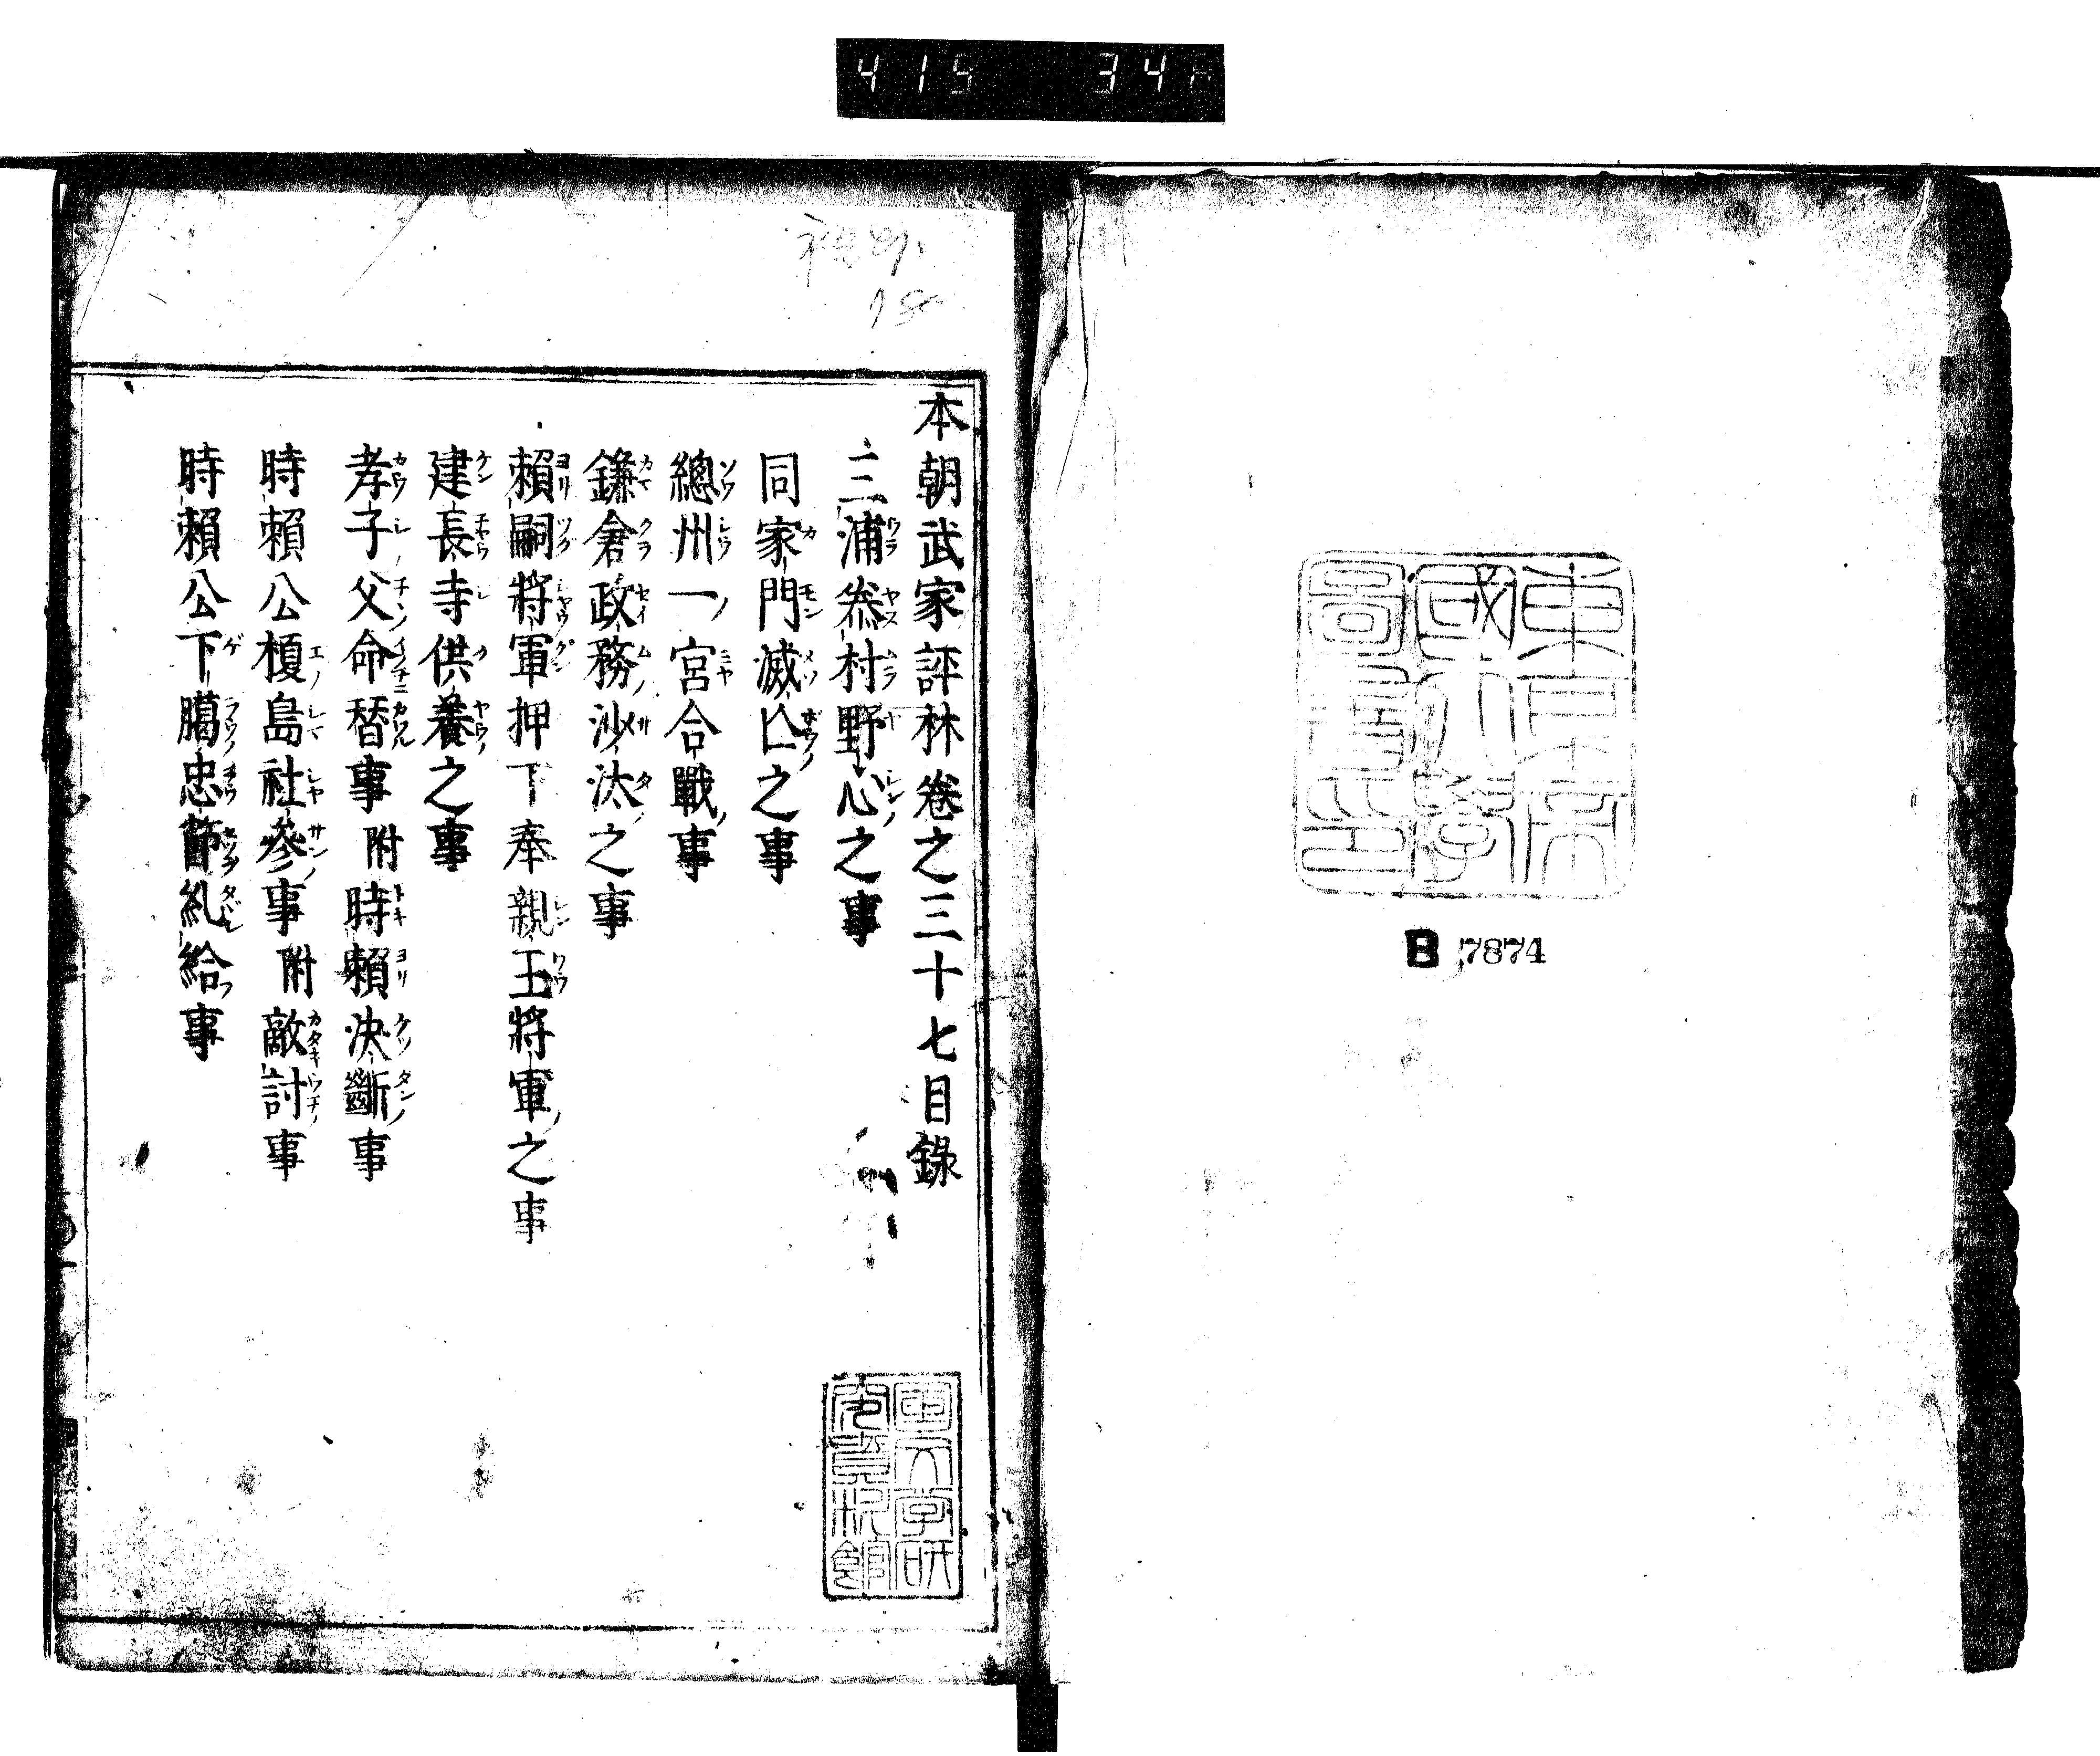 415 34
東京帝
國大學
圖書印
B 7874
本朝武家評林卷之三十七目錄
三浦泰村野心之事
同家門滅亾之事
總州一宮合戰事
鎌倉政務沙汰之事
賴嗣將軍押下奉親王將軍之事
建長寺供養之事
孝子父命替事附時賴決斷事
時賴公榎島社參事附敵討事
時賴公下臈忠節糺給事